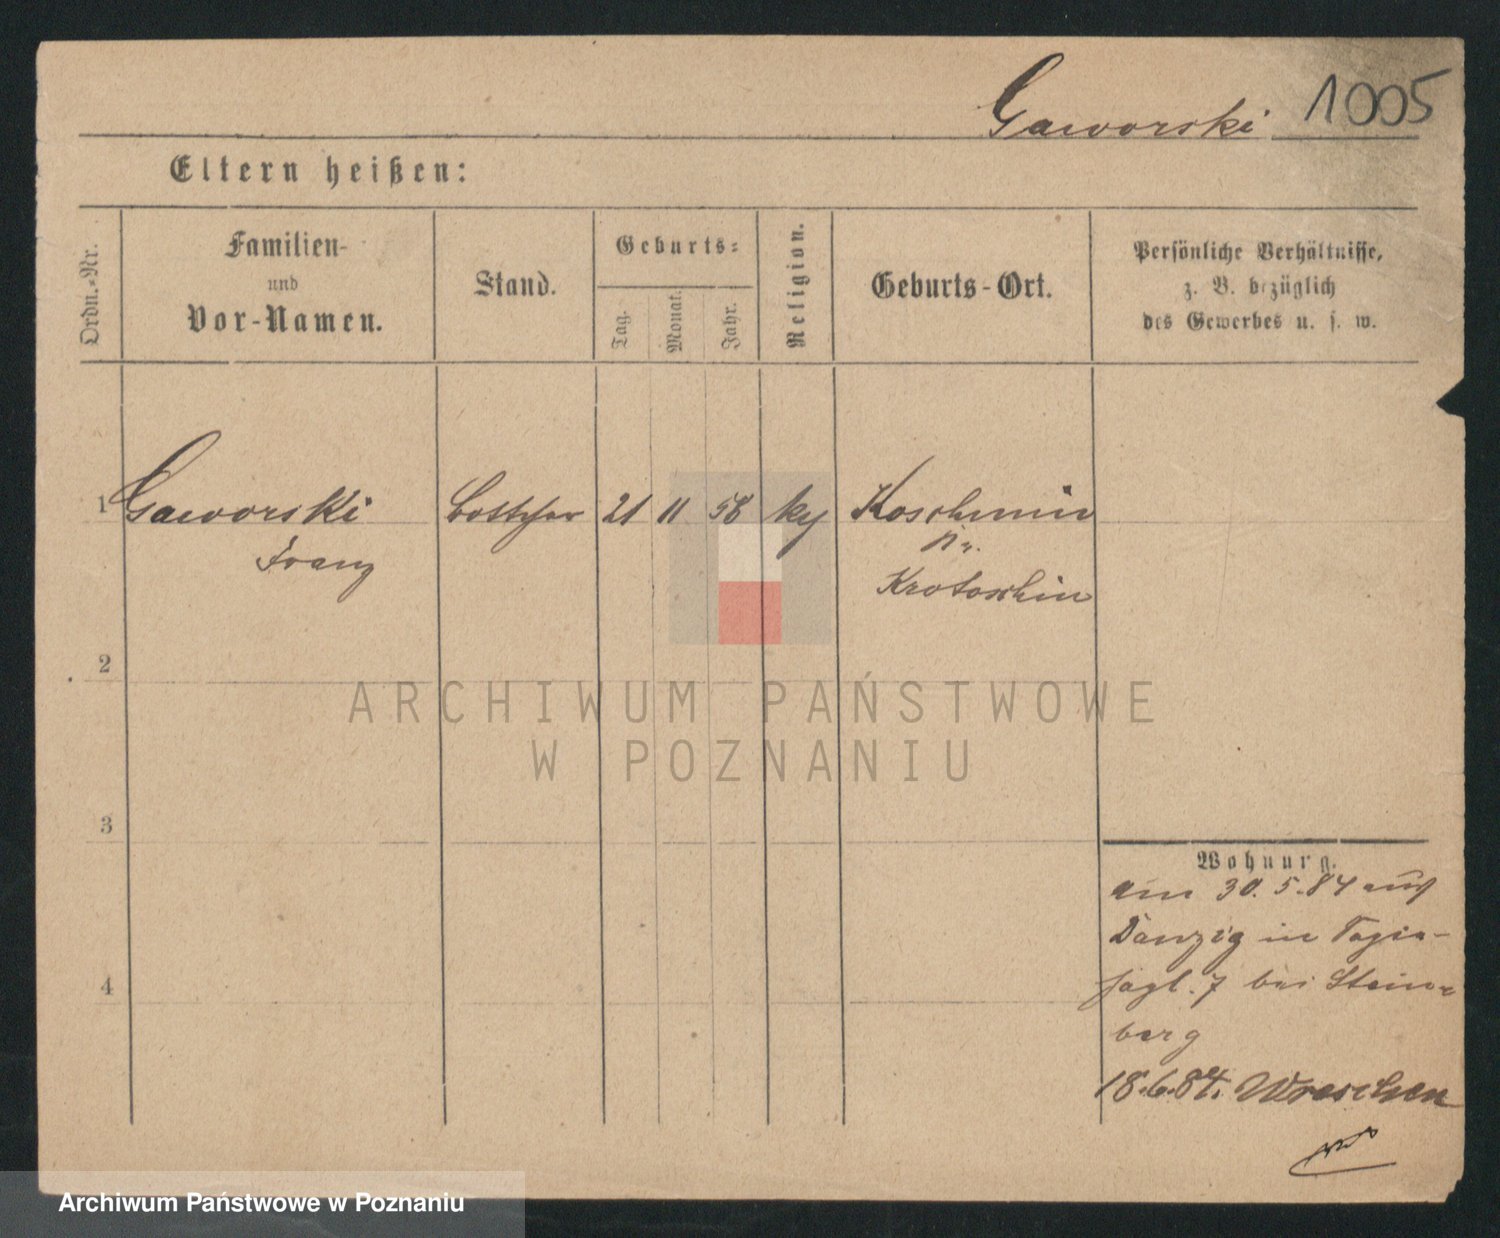 Gaworski 1005
Eltern heißen:
Ordn.-Nr.
Familien-
und
Vor-Namen.
Stand.
Geburts-
Tag.
Monat.
Jahr.
Religion.
Geburts-Ort.
Persönliche Verhältnisse,
z. B. bezüglich
des Gewerbes u. s. w.
1 Gaworski 21 11 58 Koschmin
Franz
Krotoschin
2
ARCHIWUM PAŃSTWOWE
W POZNANIU
3
4
Wohnung.
am 30.5.84 auf
Danzig in
7 bei Stein-
berg
18.6.84. Wreschen
Archiwum Państwowe w Poznaniu